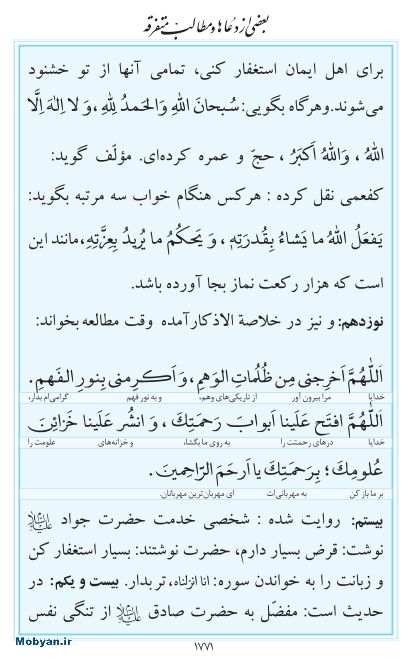 بعضی از دعاها و مطالب متفرقه
برای اهل ایمان استغفار کنی، تمامی آنها از تو خشنود
می‌شوند. وهرگاه بگویی: سُبحانَ اللهِ وَالحَمدُ لِلهِ ، وَ لا اِلٰهَ اِلَّا
اللهُ ، وَاللهُ اَکبَرُ ، حجّ و عمره کرده‌ای. مؤلّف گوید:
کفعمی نقل کرده : هرکس هنگام خواب سه مرتبه بگوید:
یَفعَلُ اللهُ ما یَشاءُ بِقُدرَتِهِ ، وَ یَحکُمُ ما یُریدُ بِعِزَّتِهِ، مانند این
است که هزار رکعت نماز بجا آورده باشد.
نوزدهم: و نیز در خلاصة الاذکار آمده وقت مطالعه بخواند:
اَللّٰهُمَّ اَخرِجنی مِن ظُلُماتِ الوَهمِ، وَ اَکرِمنی بِنورِ الفَهمِ.
خدایا مرا بیرون آور از تاریکی‌های وهم، و به نور فهم گرامی‌ام بدار،
اَللّٰهُمَّ افتَح عَلَینا اَبوابَ رَحمَتِکَ ، وَ انشُر عَلَینا خَزائِنَ
خدایا درهای رحمتت را به روی ما بگشا، و خزانه‌های علومت را
عُلومِکَ ؛ بِرَحمَتِکَ یا اَرحَمَ الرّاحِمینَ .
بر ما باز کن به مهربانی‌ات ای مهربان‌ترین مهربانان.
بیستم: روایت شده : شخصی خدمت حضرت جواد علیه السلام
نوشت: قرض بسیار دارم، حضرت نوشتند: بسیار استغفار کن
و زبانت را به خواندن سوره: انا انزلناه، تر بدار. بیست و یکم: در
حدیث است: مفضّل به حضرت صادق علیه السلام از تنگی نفس
Mobyan.ir
۱۷۷۱